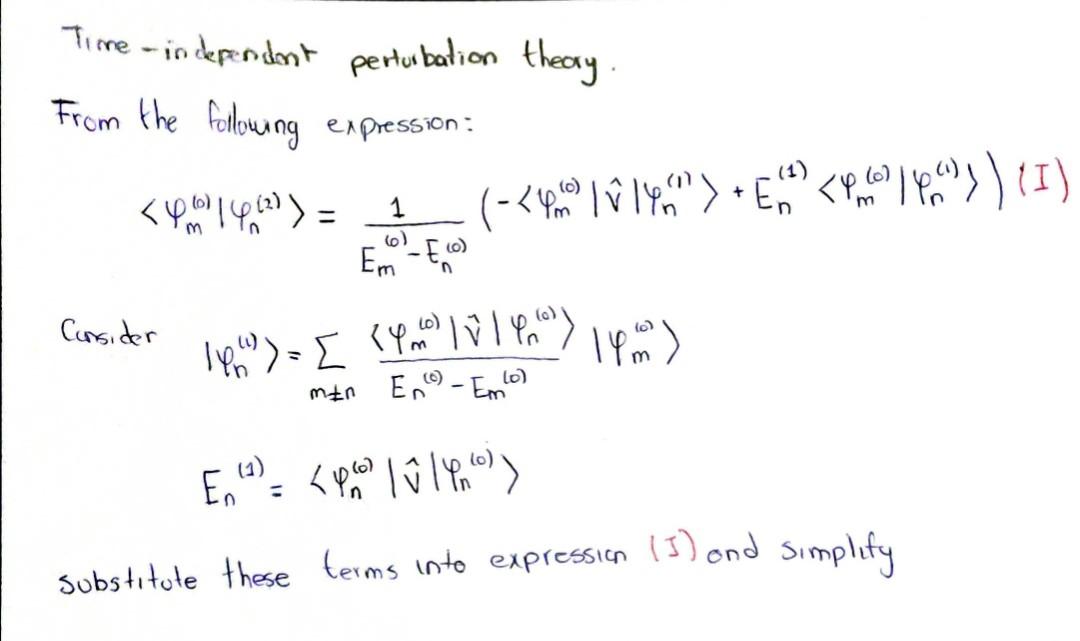 Time-independent perturbation theory.
From the following expression:
⟨φm^(0)|φn^(2)⟩ = 1/(Em^(0) - En^(0)) (-⟨φm^(0)|v̂|φn^(1)⟩ + En^(1) ⟨φm^(0)|φn^(1)⟩) (I)
Consider |φn^(1)⟩ = Σ_{m≠n} ⟨φm^(0)|v̂|φn^(0)⟩/(En^(0) - Em^(0)) |φm^(0)⟩
En^(1) = ⟨φn^(0)|v̂|φn^(0)⟩
substitute these terms into expression (I) and simplify